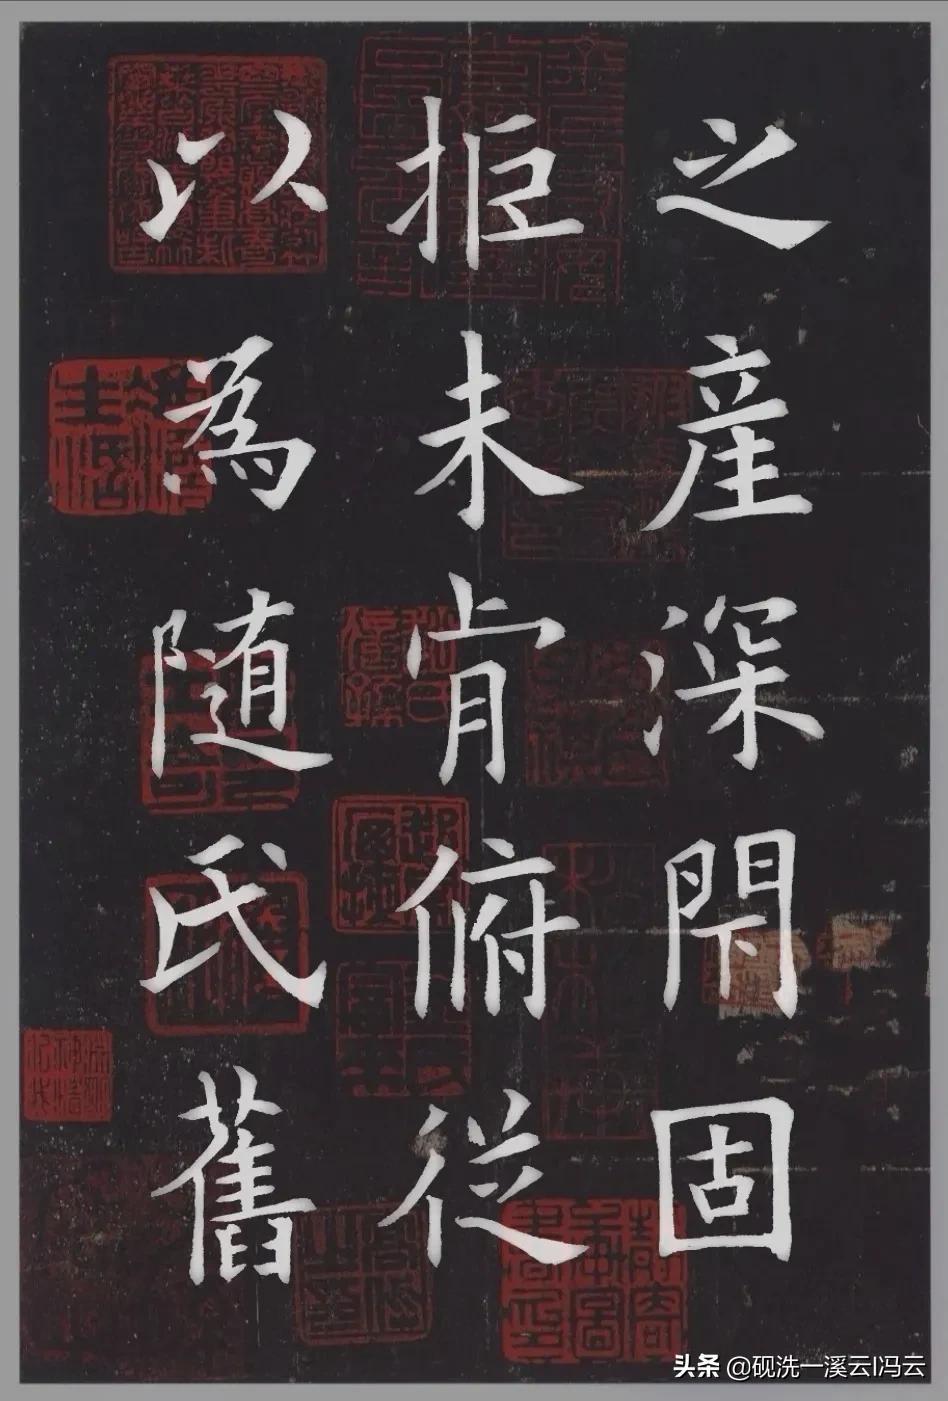 之產深閇固
拒未肯俯從
以為随氏舊
头条 @砚洗一溪云I冯云